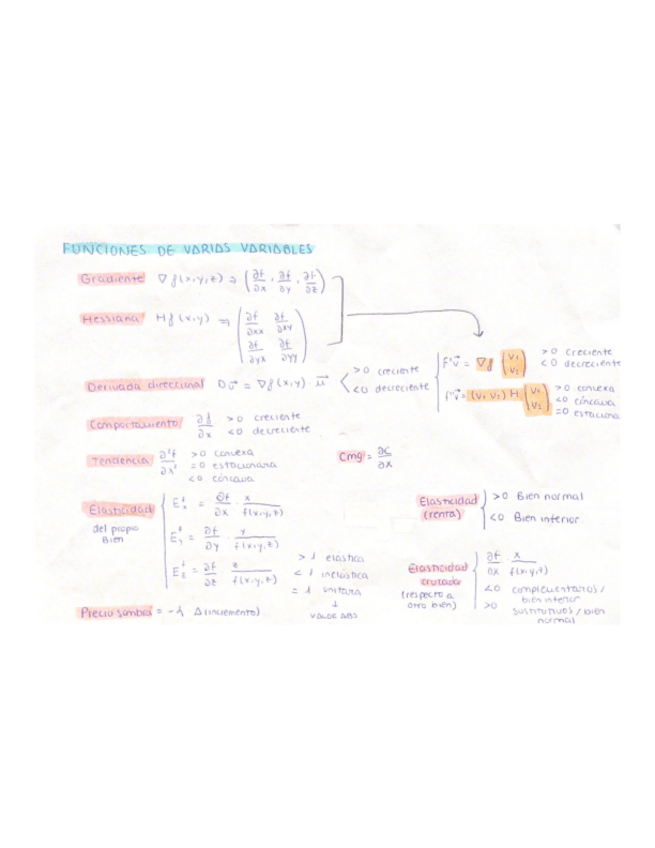 FUNCIONES DE VARIAS VARIABLES
Gradiente ∇f(x,y,z) ⇒ (∂f/∂x, ∂f/∂y, ∂f/∂z)
Hessiana Hf(x,y) ⇒ (∂f/∂xx ∂f/∂xy
∂f/∂yx ∂f/∂yy)
Derivada direccional Du⃗ = ∇f(x,y) · u⃗ >0 creciente
<0 decreciente
f'v⃗ = ∇f (v₁ v₂) >0 creciente
<0 decreciente
f''v⃗ = (v₁ v₂) H (v₁ v₂) >0 convexa
<0 cóncava
=0 estaciona
Comportamiento ∂f/∂x >0 creciente
<0 decreciente
Tendencia ∂²f/∂x² >0 convexa
=0 estacionara
<0 cóncava
Cmg = ∂C/∂x
Elasticidad
del propio
Bien
E^f_x = ∂f/∂x · x/f(x,y,z)
E^f_y = ∂f/∂y · y/f(x,y,z)
E^f_z = ∂f/∂z · z/f(x,y,z)
>1 elástica
<1 inelástica
=1 unitara
↓
VALOR ABS
Elasticidad
(renta)
>0 Bien normal
<0 Bien inferior
Elasticidad
cruzada
(respecto a
otro bien)
∂f/∂x · x/f(x,y,z)
<0 complementarios /
bien inferior
>0 sustitutivos / bien
normal
Precio sombra = -λ Δ(incremento)